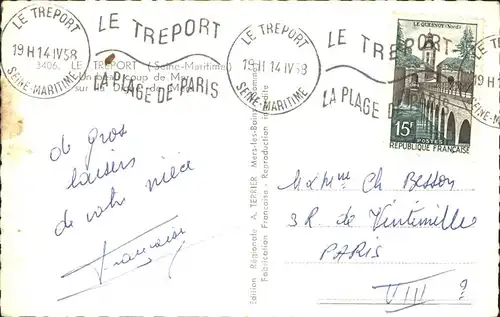 LE TREPORT
19H 14 IV 58
SEINE-MARITIME
LE TREPORT
LA PLAGE DE PARIS
LE TREPORT
19H 14 IV 58
SEINE-MARITIME
LE TREPORT
LA PLAGE DE PARIS
LE TREPORT
SEINE-MARITIME
3406. LE TREPORT (Seine-Maritime)
Un beau coup de Mer
sur
LE QUESNOY (Nord)
15F
POSTES
REPUBLIQUE FRANÇAISE
de gros
baisers
de votre nièce
Françoise
Edition Régionale A. TERRIER Mers-les-Bains
Fabrication Française - Reproduction interdite
M & Mme Ch Besson
3 R de Vintimille
PARIS
VIII ?